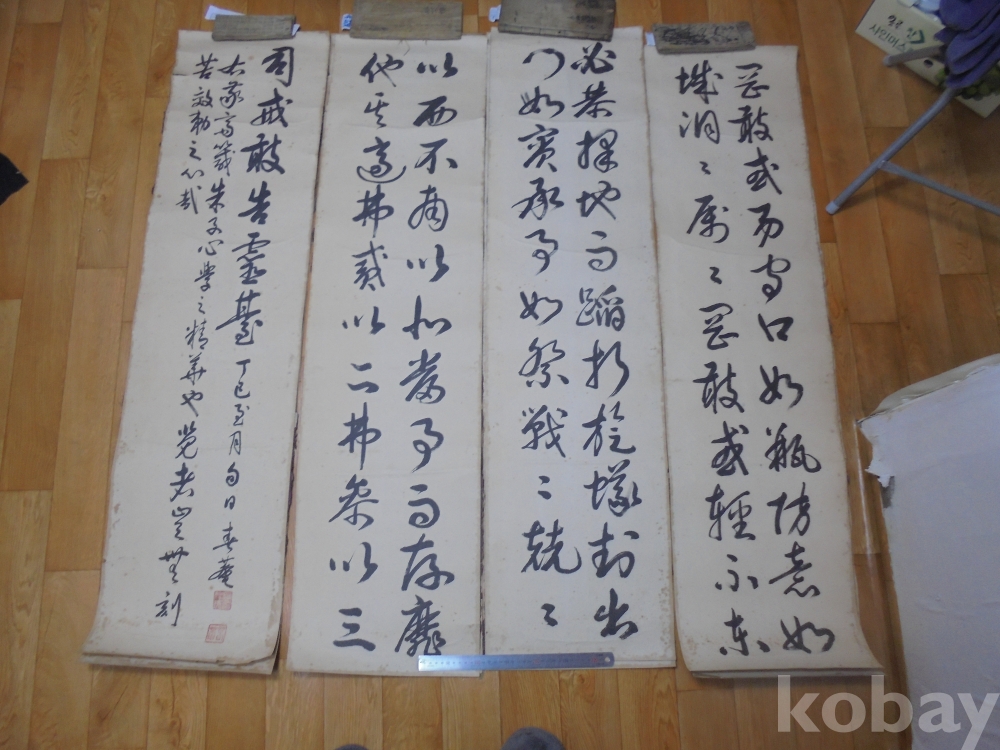 罔敢或易守口如瓶防意如
城洞々属々罔敢或輕不東
必恭擇地而蹈折旋蟻封出
門如賓承事如祭戰々兢々
以西不南以北當事而存靡
他其適弗貳以二弗參以三
司戒敢告靈臺 丁巳至月旬日 春菴
右敬齋箴朱子心學之精華也覽者豈無刻
苦效勅之心哉
kobay